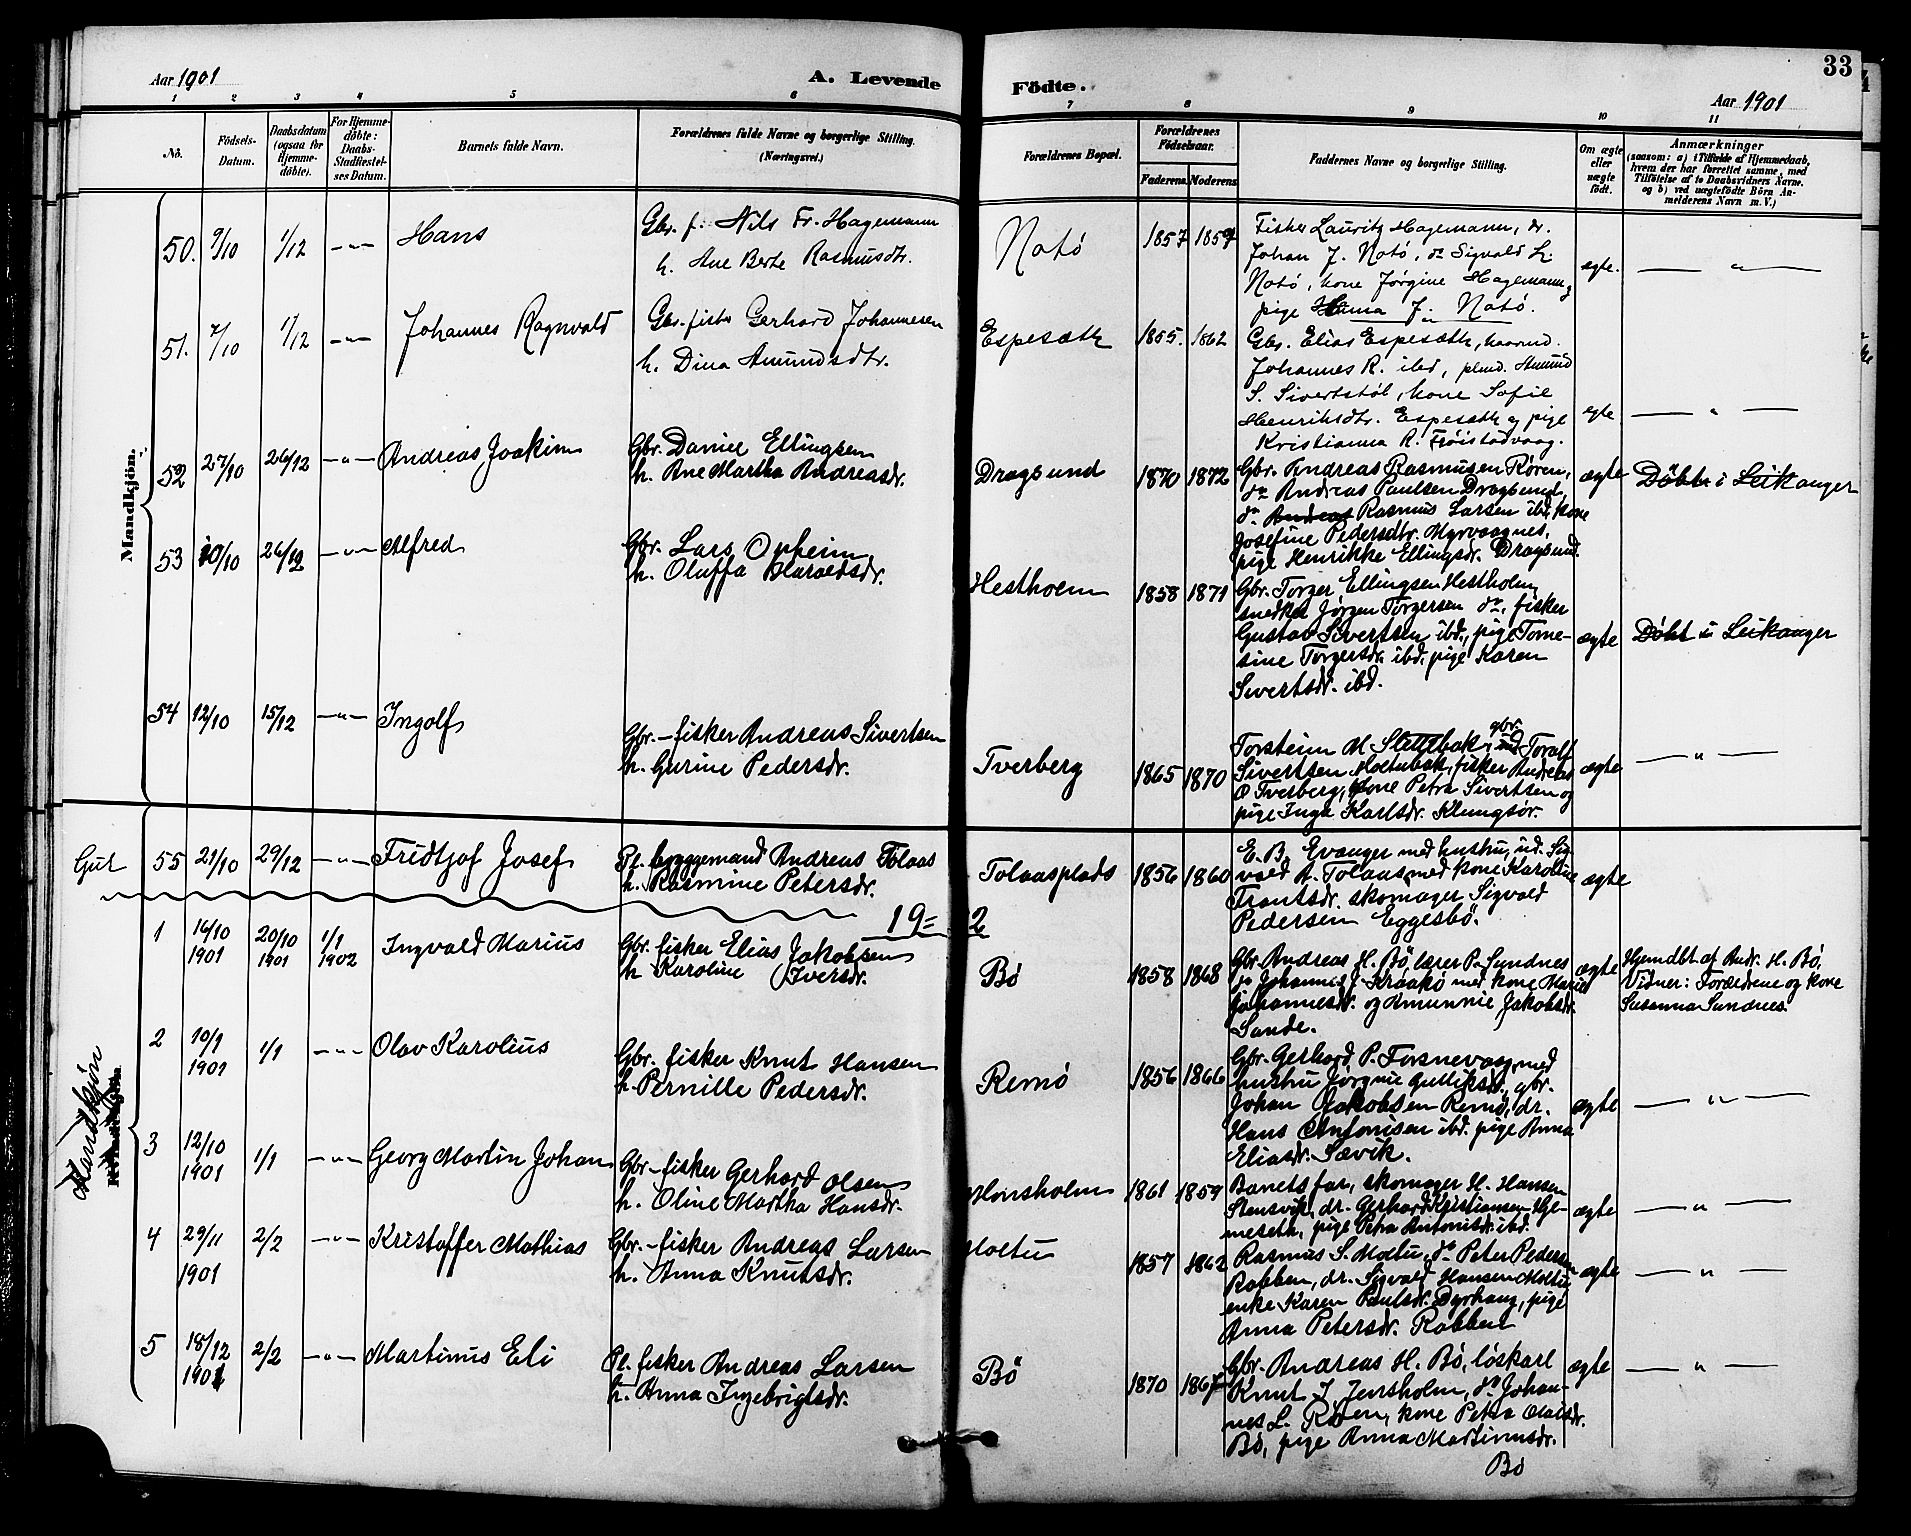 33
Aar 1901
A. Levende
Födte.
Aar 1901
1 2 3 4 5 6 7 8 9 10 11
No.
Födsels-
Datum.
Daabsdatum
(ogsaa for
Hjemme-
döbte).
For Hjemme-
döbte:
Daabs-
Stadfæstel-
ses Datum.
Barnets fulde Navn.
Forældrenes fulde Navne og borgerlige Stilling.
(Næringsvei.)
Forældrenes Bopæl.
Forældrenes
Födselsaar.
Faderens. Moderens.
Faddernes Navne og borgerlige Stilling.
Om ægte
eller
uægte
födt.
Anmærkninger
(saasom: a) i Tilfælde af Hjemmedaab,
hvem der har forrettet samme, med
Tilföielse af to Daabsvidners Navne,
og b) ved uægtefödte Börn An-
melderens Navn m. V.)
Mandkjön.
50. 9/10 1/12 -"- Hans
Gbr. f. Nils Fr. Hagemann
h. Ane Berte Rasmusdtr.
Notö 1857 1859
Fisker Lauritz Hagemann, dr.
Johan J. Notö, do Sigvald L.
Notö, kone Jörgine Hagemann,
pige Hanna J. Notö.
ægte. - " -
51. 7/10 1/12 -"- Johannes Ragnvald
Gbr. fisker Gerhard Johannesen
h. Dina Amundsdtr.
Espesæth 1855. 1862
Gbr. Elias Espesæth, kaarmd.
Johannes R. ibd, plmd. Amund
S. Sivertstöl, kone Sofie
Henriksdtr. Espesæth og pige
Kristianna R. Fröistadvaag.
egte - " -
52 27/10 26/12 -"- Andreas Joakim
Gbr. Daniel Ellingsen
h. Ane Martha Andreasdr.
Dragsund 1870 1872
Gbr. Andreas Rasmusen Rören,
do Andreas Paulsen Dragsund,
do Andreas Rasmus Larsen ibd, kone
Josefine Pedersdtr. Myrvaagnes,
pige Henrikke Ellingsdr. Dragsund.
ægte Döbt i Leikanger
53 20/10 26/12 -"- Alfred
Gbr. Lars Opheim
h. Oluffa Haraldsdr.
Hestholm 1858 1871
Gbr. Torger Ellingsen Hestholm,
snedker Jörgen Torgersen do, fisker
Gustav Sivertsen ibd., pige Tome-
sine Torgersdr. ibd, pige Karen
Sivertsdr. ibd.
ægte Döbt i Leikanger
54 12/10 15/12 -"- Ingolf
Gbr.-fisker Andreas Sivertsen
h. Gurine Pedersdr.
Tverberg 1865 1870
gbr.
Torstein M. Stettebak, Toralf
Sivertsen Moltubak, fisker Andreas
O Tverberg, kone Petra Sivertsen og
pige Inga Karlsdr. Klungsör.
ægte - " -
Gut 55 21/10 29/12 -"- Fridtjof Josef
Pl. byggemand Andreas Tolaas
h. Rasmine Petersdr.
Tolaasplads 1856 1860
E. B. Evanger med hustru, ud. Sig-
vald A. Tolaas med kone Karoline
Frantsdr. skomager Sigvald
Pedersen Eggesbö.
ægte
19=2
Mandkjön
Kvindekjön.
1 16/10 1901 20/10 1901 1/1 1902 Ingvald Marius
Gbr. fisker Elias Jakobsen
h Karoline Iversdr.
Bö 1858 1868
Gbr. Andreas H. Bö, lærer P. Sundnes
do Johannes J. Kraakö med kone Marie
Johannesdr. og Amunnie Jakobsdr.
Sande.
ægte
Hjemdbt af Andr. H. Bö,
Vidner: Forældrene og kone
Susanna Sundnes
2 10/9 1901 1/1 -"- Olav Karolius
Gbr. fisker Knut Hansen
h. Pernille Pedersdr.
Remö 1856 1866
Gbr. Gerhard P. Torsnevaag med
hustru Jörgine Gulliksdr., gbr.
Johan Jakobsen Remö, dr.
Hans Antonisen ibd. pige Anna
Eliasdr. Sævik.
ægte - " -
3 12/10 1901 1/1 -"- Georg Martin Johan
Gbr.-fisker Gerhard Olsen
h. Oline Martha Hansdr.
Honsholm 1861 1859
Banets far, skomager H. Hansen
Stensvik, dr. Gerhard Kristiansen Hje-
meseth, pige Petra Antonisdr. ibd.
ægte - " -
4 29/11 1901 2/2 -"- Kristoffer Mathias
Gbr.-fisker Andreas Larsen
h. Anna Knutsdr.
Moltu 1857 1862
Rasmus S. Moltu, do Peter Pedersen
Rabben, dr. Sigvald Hansen Moltu
enke Karen Paulsdr. Dyrhaug, pige
Anna Petersdr. Rabben
ægte - " -
5 18/12 1901 2/2 -"- Martinus Eli
Pl. fisker Andreas Larsen
h. Anna Ingebrigtsdr.
Bö 1870 1867
Gbr. Andreas H. Bö, löskarl
Knut J. Jensholm, do Johan-
nes L. Rören, kone Petra Olalsdr.
Bö, pige Anna Martinusdr.
Bö
ægte - " -